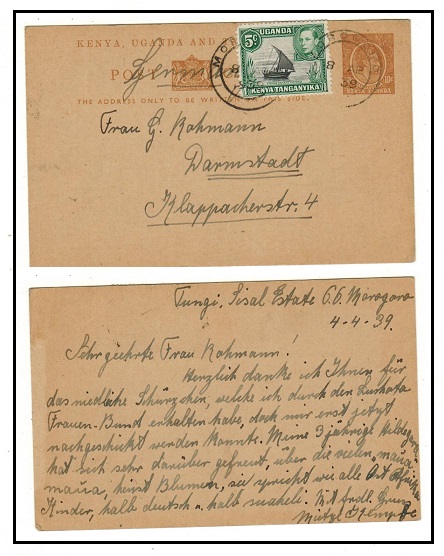 KENYA, UGANDA AND
POST
Germany
THE ADDRESS ONLY TO BE WRITTEN THIS SIDE.
5c
UGANDA
KENYA TANGANYIKA
10c
KENYA UGANDA
Frau G. Rohmann
Darmstadt
Klappacherstr. 4
Tungi, Sisal Estate b. Morogoro
4-4-39.
Sehr geehrte Frau Rohmann!
Herzlich danke ich Ihnen für
das niedliche Schürzchen, welche ich durch den Lushoto
Frauen-Bund erhalten habe, doch mir erst jetzt
nachgeschickt werden konnte. Meine 3 jährige Hildegard
hat sich sehr darüber gefreut, über die vielen "maua,
maua, heist Blumen, sie spricht wie alle Ost Afrika
Kinder, halb deutsch u. halb suaheli. Mit frdl. Gruss